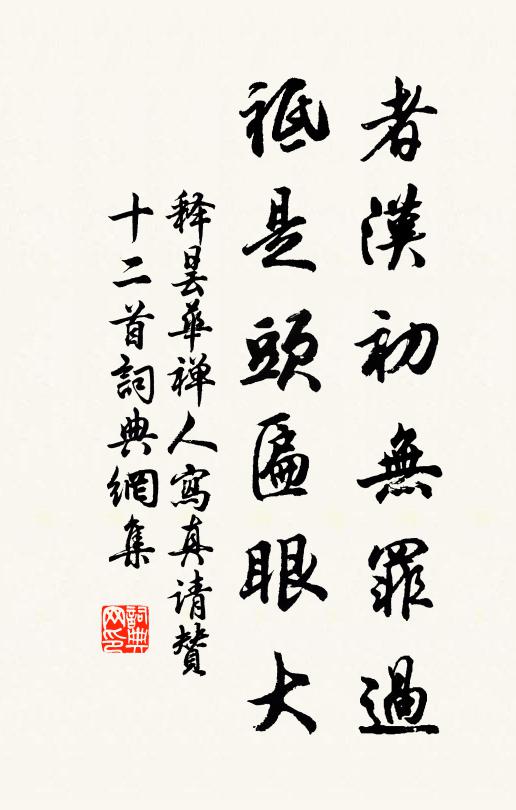 者漢初無罪過
祇是頭匾眼大
释曇華禅人寫真请贊
十二首詞典網集
詞典网印